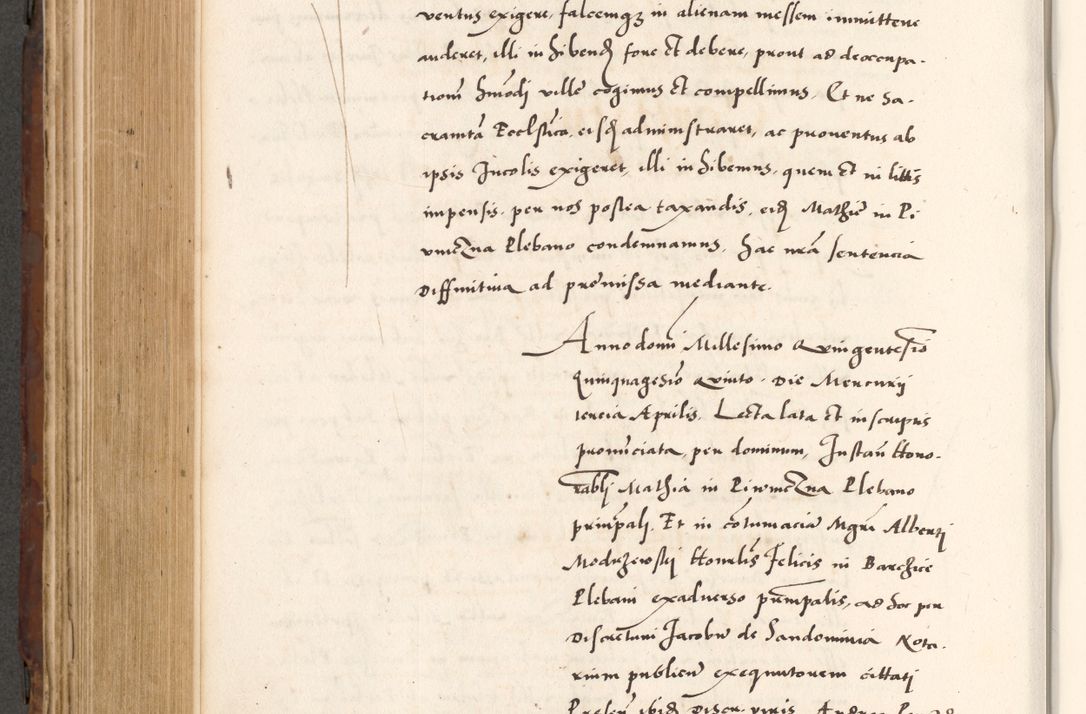 ventus exigere, falcemqз in alienam messem inmittere
auderet, illi inhibend fore et debere, prout ad deoccupa-
tionẽ hmõdi ville cogimus et compellimus. Et ne Sa-
cramtã Ecclſtica, eisd administraret, ac proventus ab
ipsis Incolis exigeret, illi inhibemus, quem et in littis
impensis, per nos postea taxandis, eid Mathie in Pi-
Plebano condemnamus. hac nrã sententia
Diffinitiva ad premissa mediante.
Anno domi Millesimo Quingentesio
Quinquagesio Quinto. Die Mercurij
tercia Aprilis. Lecta lata et in scriptis
pronunciata, per dominum, Instan Hono-
rabli Mathia in Plebano
principali. Et in cõtumacia Mgri Alberti
Modrzewski Honrlis Felicis in Barchice
Plebani exadverso principalis, ad hoc per
Discretum Jacobũ de Sandomiria Nota-
rium publicũ exequutorem cittati
ibid Discr. viris, Andrea